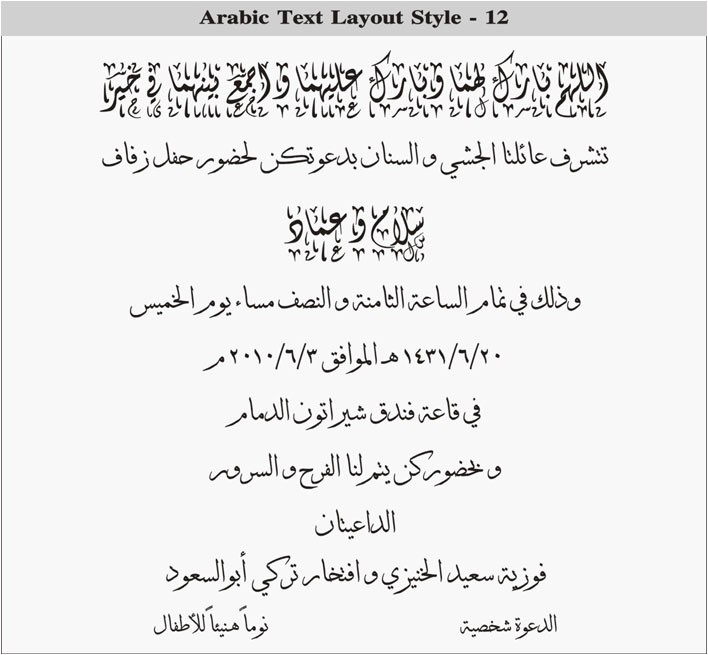 Arabic Text Layout Style - 12
اللهم بارك لهما وبارك عليهما واجمع بينهما في خير
تتشرف عائلتا الجشي و السنان بدعوتكن لحضور حفل زفاف
سلام و عماد
وذلك في تمام الساعة الثامنة و النصف مساء يوم الخميس
١٤٣١/٦/٢٠ هـ الموافق ٢٠١٠/٦/٣ م
في قاعة فندق شيراتون الدمام
و بحضوركن يتم لنا الفرح و السرور
الداعيتان
فوزية سعيد الخنيزي و افتخار تركي أبوالسعود
الدعوة شخصية
نوماً هنيئاً للأطفال